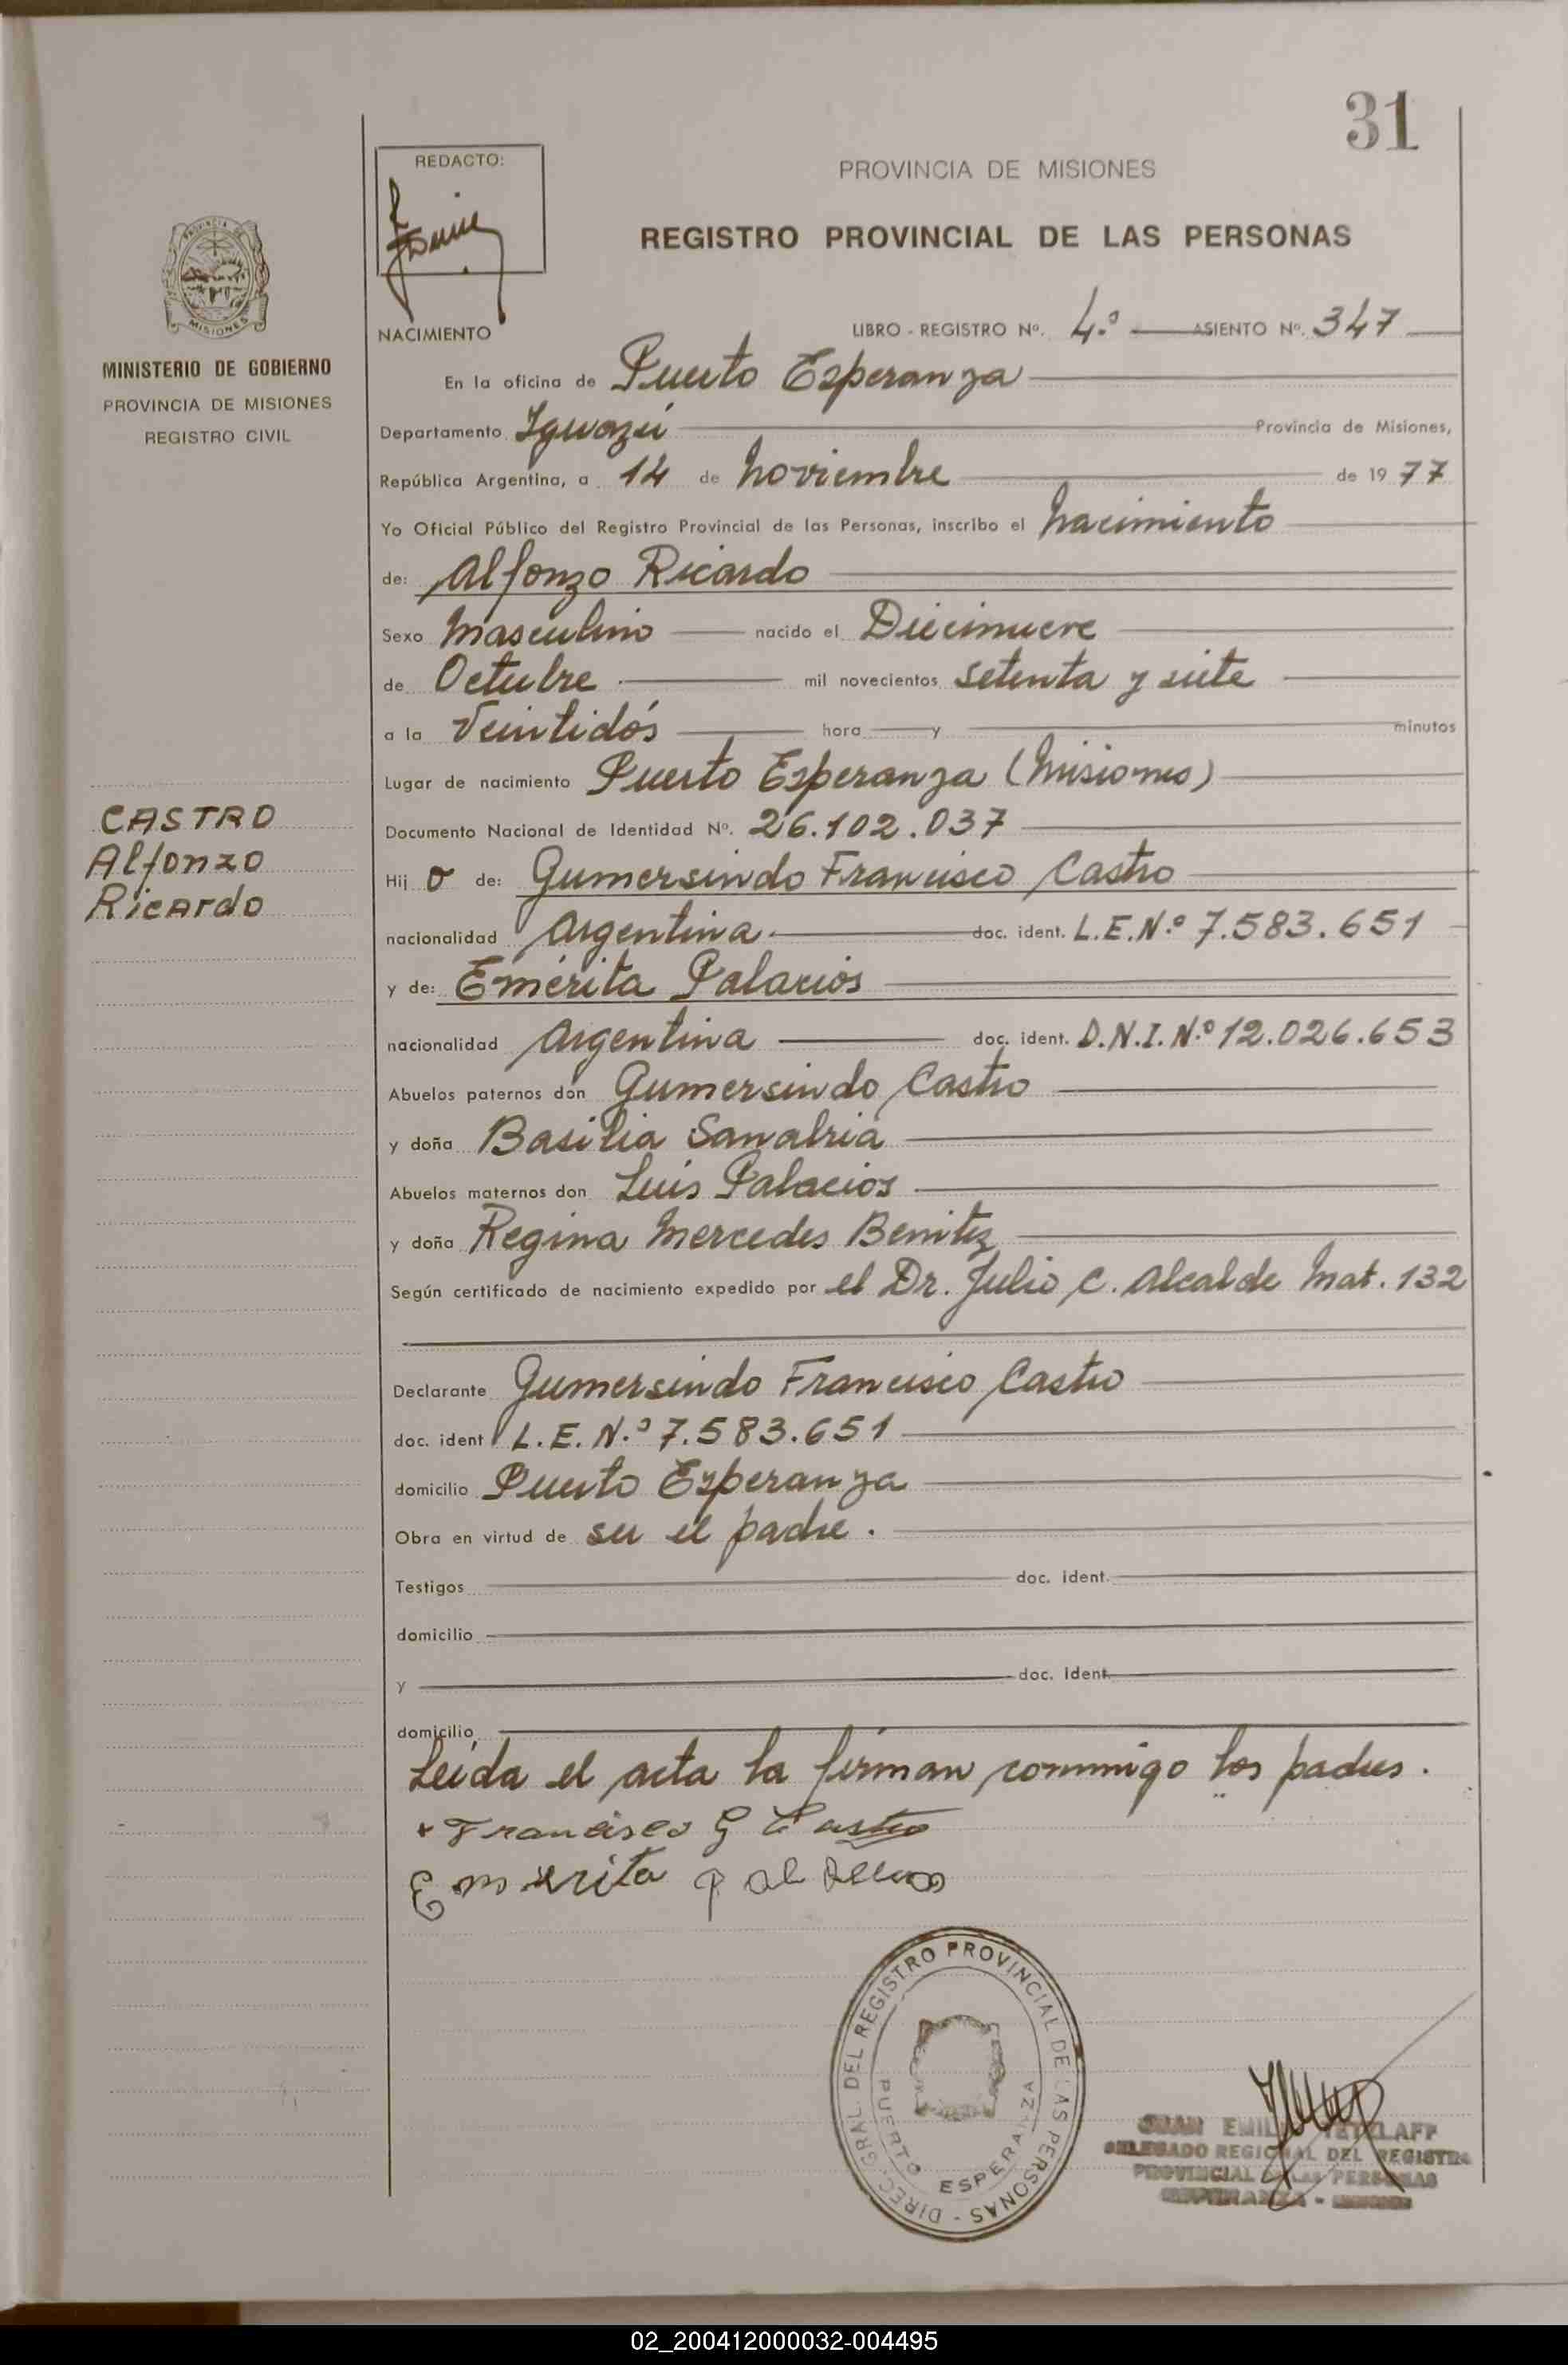 31
REDACTO:
PROVINCIA DE MISIONES
REGISTRO PROVINCIAL DE LAS PERSONAS
MISIONES
MINISTERIO DE GOBIERNO
PROVINCIA DE MISIONES
REGISTRO CIVIL
CASTRO
Alfonzo
Ricardo
NACIMIENTO
LIBRO - REGISTRO Nº. 4.º ASIENTO Nº. 347
En la oficina de Puerto Esperanza
Departamento Iguazú Provincia de Misiones,
República Argentina, a 14 de Noviembre de 1977
Yo Oficial Público del Registro Provincial de las Personas, inscribo el Nacimiento
de: Alfonzo Ricardo
Sexo Masculino nacido el Diecinueve
de Octubre mil novecientos setenta y siete
a la Veintidós hora y minutos
Lugar de nacimiento Puerto Esperanza (Misiones)
Documento Nacional de Identidad Nº. 26.102.037
Hij o de: Gumersindo Francisco Castro
nacionalidad Argentina. doc. ident. L.E.N.º 7.583.651
y de: Emérita Palacios
nacionalidad Argentina doc. ident. D.N.I. N.º 12.026.653
Abuelos paternos don Gumersindo Castro
y doña Basilia Sanabria
Abuelos maternos don Luis Palacios
y doña Regina Mercedes Benitez
Según certificado de nacimiento expedido por el Dr. Julio C. Alcalde Mat. 132
Declarante Gumersindo Francisco Castro
doc. ident L.E. N.º 7.583.651
domicilio Puerto Esperanza
Obra en virtud de ser el padre.
Testigos doc. ident.
domicilio
y doc. ident.
domicilio
Leída el acta la firman conmigo los padres.
Francisco G Castro
Emerita
DIREC. GRAL. DEL REGISTRO PROVINCIAL DE LAS PERSONAS -
PUERTO ESPERANZA
JUAN
DELEGADO REGIONAL DEL REGISTRO
PROVINCIAL DE LAS PERSONAS
ESPERANZA - MISIONES
02_200412000032-004495